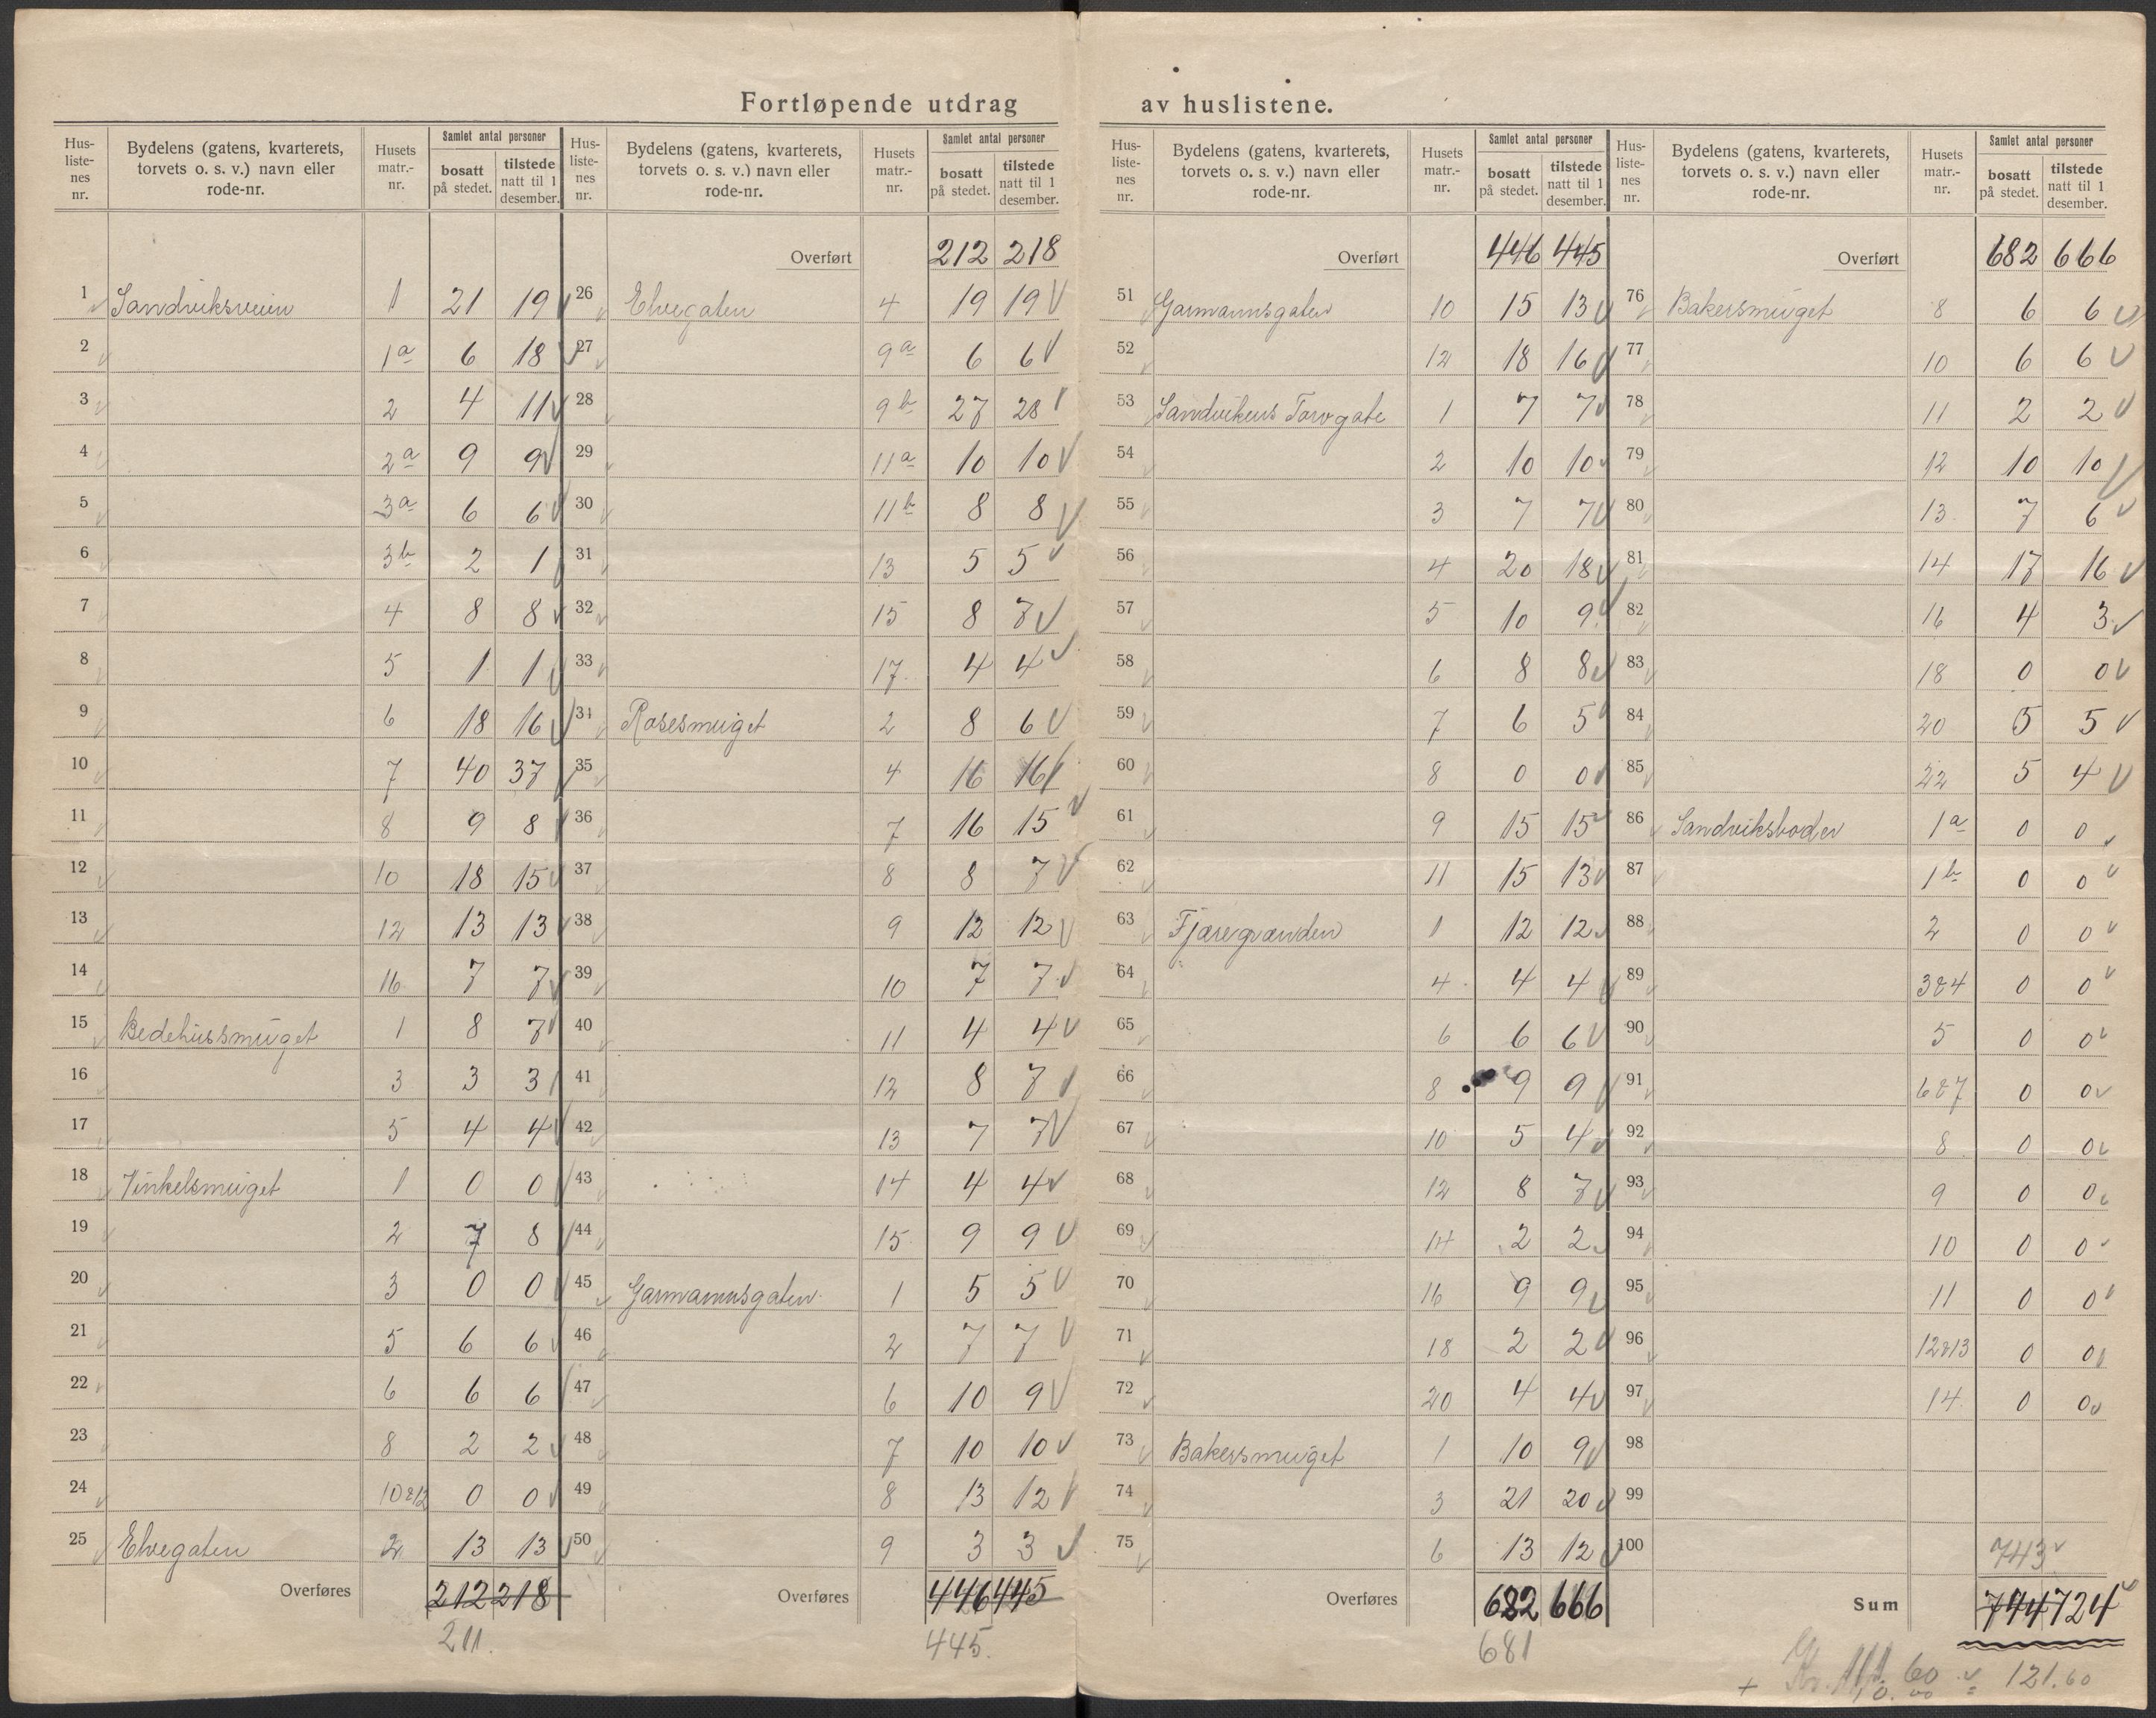 Fortløpende utdrag av huslistene.
Hus-listenes nr. | Bydelens (gatens, kvarterets, torvets o. s. v.) navn eller rode-nr. | Husets matr.-nr. | Samlet antal personer bosatt på stedet. | tilstede natt til 1 desember.
1 Sandviksveien 1 21 19
2 1a 6 18
3 2 4 11
4 2a 9 9
5 3a 6 6
6 3b 2 1
7 4 8 8
8 5 1 1
9 6 18 16
10 7 40 37
11 8 9 8
12 10 18 15
13 12 13 13
14 16 7 7
15 Bedehussmuget 1 8 7
16 3 3 3
17 5 4 4
18 Vinkelsmuget 1 0 0
19 2 7 8
20 3 0 0
21 5 6 6
22 6 6 6
23 8 2 2
24 10&12 0 0
25 Elvegaten 2 13 13
Overføres 212 218
211.
Hus-listenes nr. | Bydelens (gatens, kvarterets, torvets o. s. v.) navn eller rode-nr. | Husets matr.-nr. | Samlet antal personer bosatt på stedet. | tilstede natt til 1 desember.
Overført 212 218
26 Elvegaten 4 19 19
27 9a 6 6
28 9b 27 28
29 11a 10 10
30 11b 8 8
31 13 5 5
32 15 8 7
33 17 4 4
34 Rosesmuget 2 8 6
35 4 16 16
36 7 16 15
37 8 8 7
38 9 12 12
39 10 7 7
40 11 4 4
41 12 8 7
42 13 7 7
43 14 4 4
44 15 9 9
45 Garmannsgaten 1 5 5
46 2 7 7
47 6 10 9
48 7 10 10
49 8 13 12
50 9 3 3
Overføres 446 445
445.
Hus-listenes nr. | Bydelens (gatens, kvarterets, torvets o. s. v.) navn eller rode-nr. | Husets matr.-nr. | Samlet antal personer bosatt på stedet. | tilstede natt til 1 desember.
Overført 446 445
51 Garmannsgaten 10 15 13
52 12 18 16
53 Sandvikens Torvgate 1 7 7
54 2 10 10
55 3 7 7
56 4 20 18
57 5 10 9
58 6 8 8
59 7 6 5
60 8 0 0
61 9 15 15
62 11 15 13
63 Fjæregrænden 1 12 12
64 4 4 4
65 6 6 6
66 8 9 9
67 10 5 4
68 12 8 7
69 14 2 2
70 16 9 9
71 18 2 2
72 20 4 4
73 Bakersmuget 1 10 9
74 3 21 20
75 6 13 12
Overføres 682 666
681
Hus-listenes nr. | Bydelens (gatens, kvarterets, torvets o. s. v.) navn eller rode-nr. | Husets matr.-nr. | Samlet antal personer bosatt på stedet. | tilstede natt til 1 desember.
Overført 682 666
76 Bakersmuget 8 6 6
77 10 6 6
78 11 2 2
79 12 10 10
80 13 7 6
81 14 17 16
82 16 4 3
83 18 0 0
84 20 5 5
85 22 5 4
86 Sandviksboder 1a 0 0
87 1b 0 0
88 2 0 0
89 3&4 0 0
90 5 0 0
91 6&7 0 0
92 8 0 0
93 9 0 0
94 10 0 0
95 11 0 0
96 12&13 0 0
97 14 0 0
98
99
100
743
Sum 744 724
+ 10.00 = 121.60